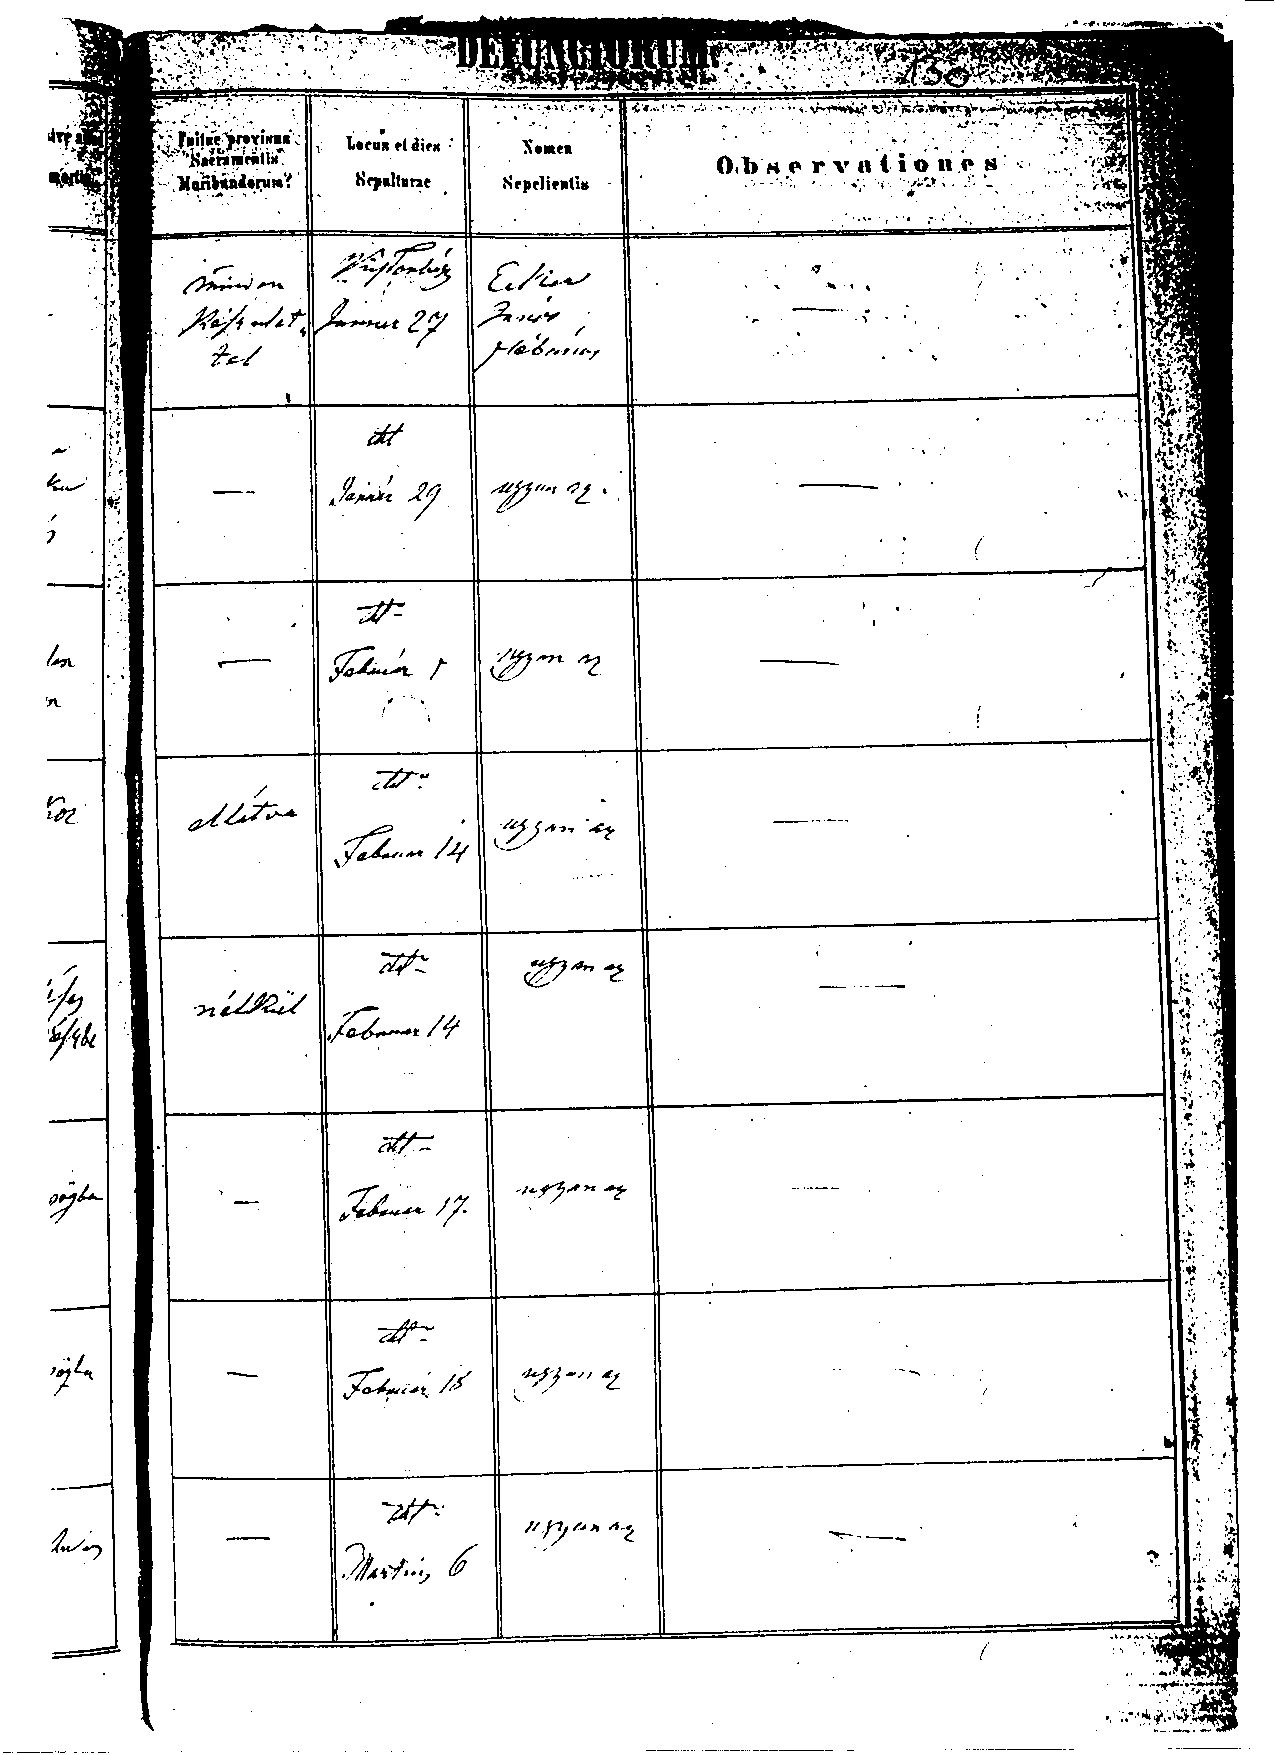 DEFUNCTORUM.
130
Fuitne provisus
Sacramentis
Moribundorum?
Locus et dies
Sepulturae
Nomen
Sepelientis
Observationes
minden
tel
Januar 27
János
plébános
—
dtt
Január 29
ugyan az.
—
—
dtt
Február 1
ugyan az
—
ellátva
dtt
Februar 14
ugyan az
—
nélkül
dtt
Februar 14
ugyan az
—
—
dtt
Februar 17.
ugyan az
—
—
dtt
Február 18
ugyan az
—
—
dtt
Martius 6
ugyan az
—